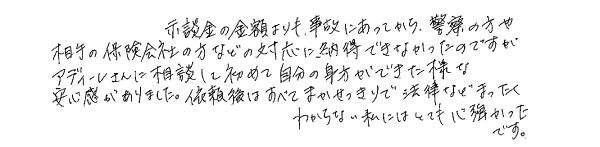 示談金の金額よりも、事故にあってから、警察の方や
相手の保険会社の方などの対応に納得できなかったのですが
アディーレさんに相談して初めて自分の身方ができた様な
安心感がありました。依頼後はすべてまかせっきりで法律などまったく
わからない私にはとても心強かった
です。